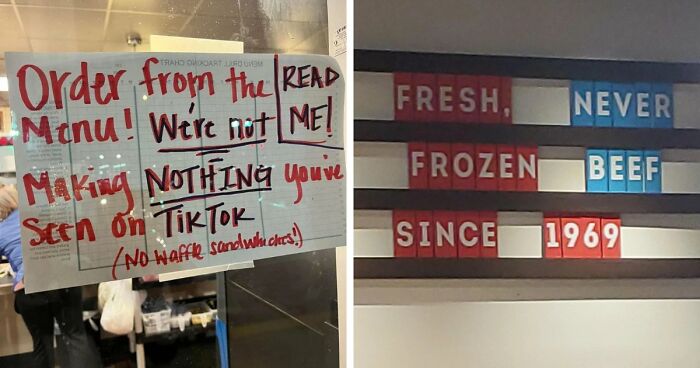 MENU DRILL TRACKING CHART
Order from the
READ
ME!
Menu! We're not
Making NOTHING you've
Seen on TIKTOK
(No waffle sandwhiches!)
FRESH, NEVER
FROZEN BEEF
SINCE 1969